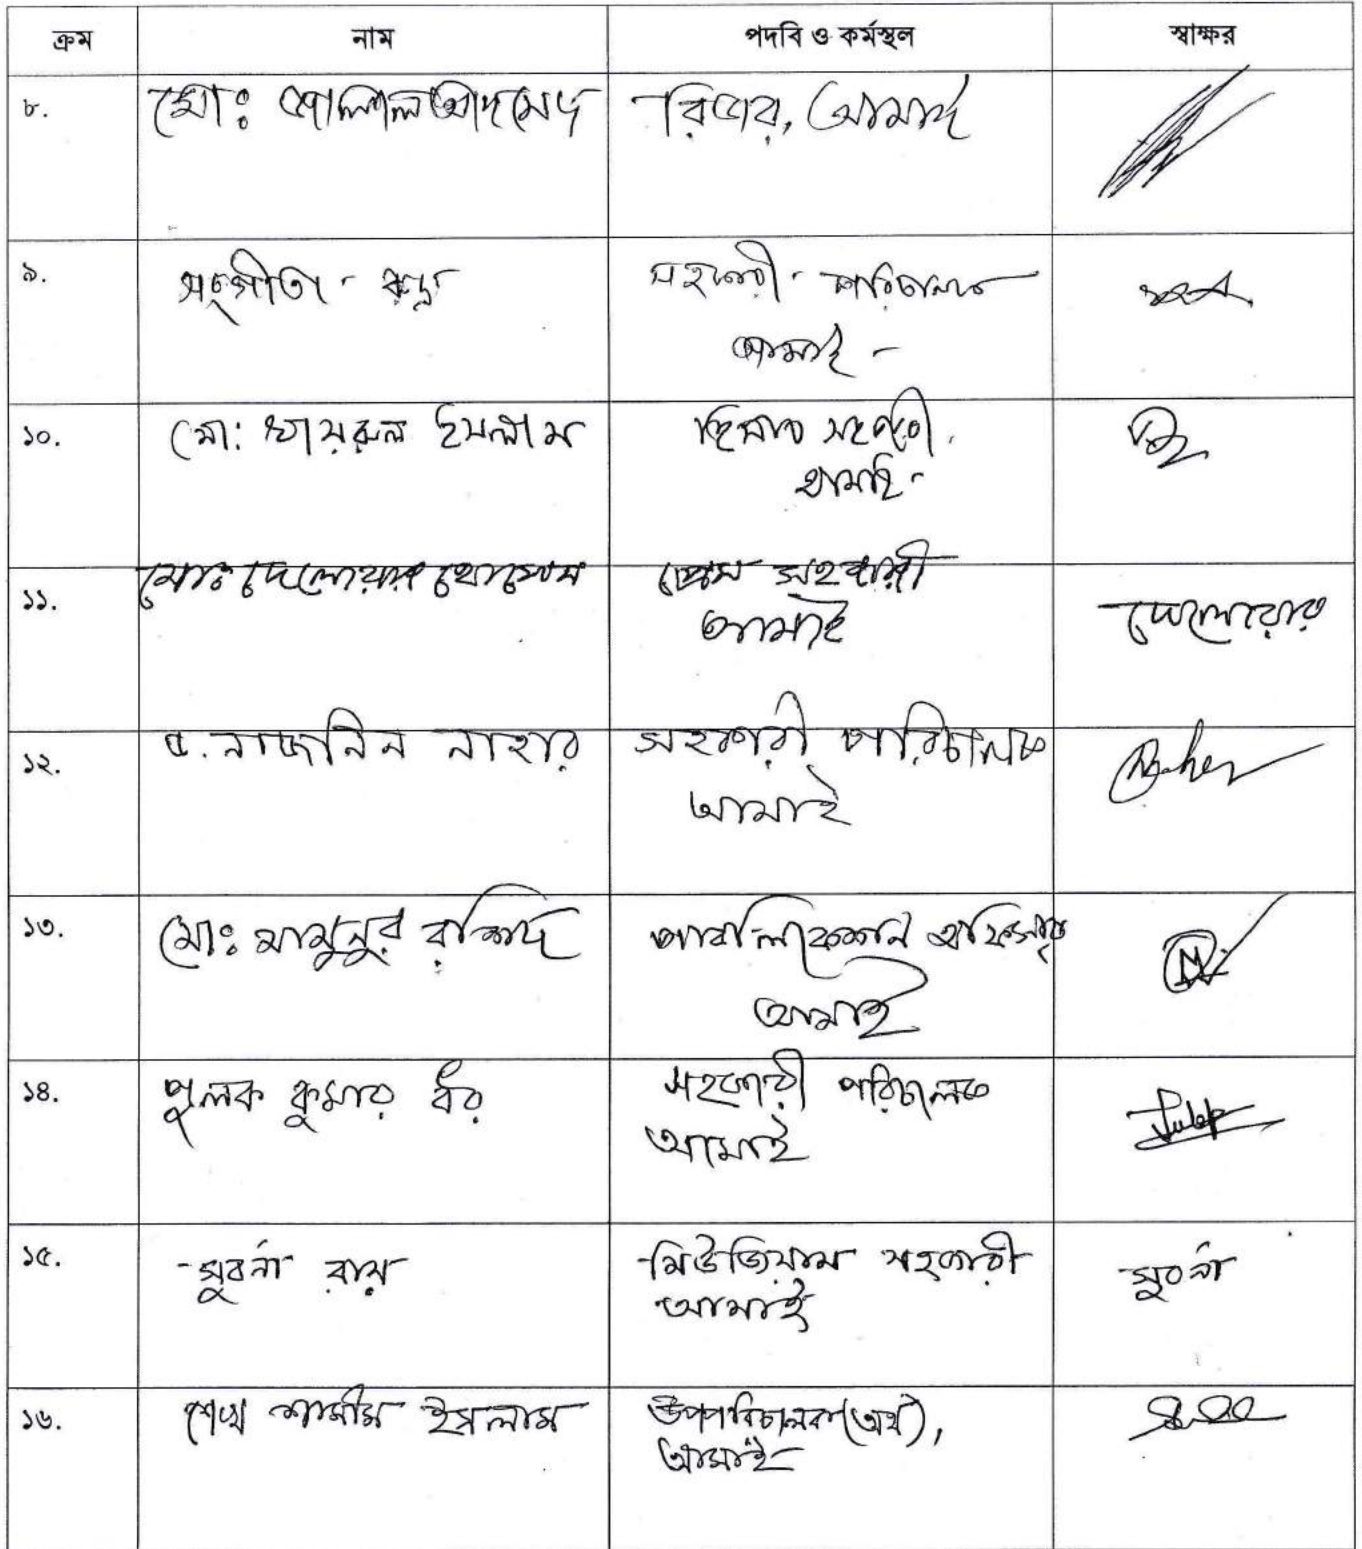 ক্রম নাম পদবি ও কর্মস্থল স্বাক্ষর
৮. মোঃ আহমেদ রিডার, আমাই
৯. সংগীতা রুদ্র সহকারী পরিচালক
আমাই
১০. মো: খায়রুল ইসলাম হিসাব সহকারী,
আমাই
১১. মোঃ দেলোয়ার হোসেন প্রেস সহকারী
আমাই দেলোয়ার
১২. ড. নাজনিন নাহার সহকারী পরিচালক
আমাই
১৩. মোঃ মামুনুর রশিদ পাবলিকেশন অফিসার
আমাই
১৪. পুলক কুমার ধর সহকারী পরিচালক
আমাই
১৫. সুবর্না রায় মিউজিয়াম সহকারী সুবর্না
আমাই
১৬. শেখ শামীম ইসলাম উপপরিচালক (অর্থ),
আমাই